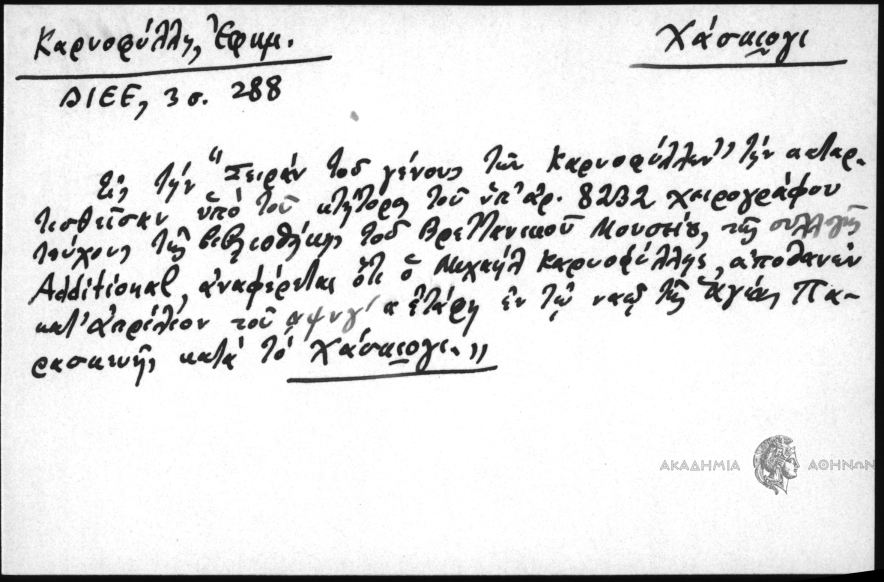 Καρυοφύλλης, Ἐφημ.
Χάσκιογι
ΔΙΕΕ, 3 σ. 288
Εἰς τὴν "Σειρὰν τοῦ γένους τῶν Καρυοφύλλων" τὴν καταρ-
τισθεῖσαν ὑπὸ τοῦ κτήτορος τοῦ ὑπ' ἀρ. 8232 χειρογράφου
τεύχους τῆς βιβλιοθήκης τοῦ Βρεττανικοῦ Μουσείου, τῆς συλλογῆς
Additional, ἀναφέρεται ὅτι ὁ Μιχαὴλ Καρυοφύλλης, ἀποθανὼν
κατ' ἀπρίλιον τοῦ αψνγ' ἐτάφη ἐν τῷ ναῷ τῆς Ἁγίας Πα-
ρασκευῆς κατὰ τὸ Χάσκιογι.,,
ΑΚΑΔΗΜΙΑ ΑΘΗΝΩΝ